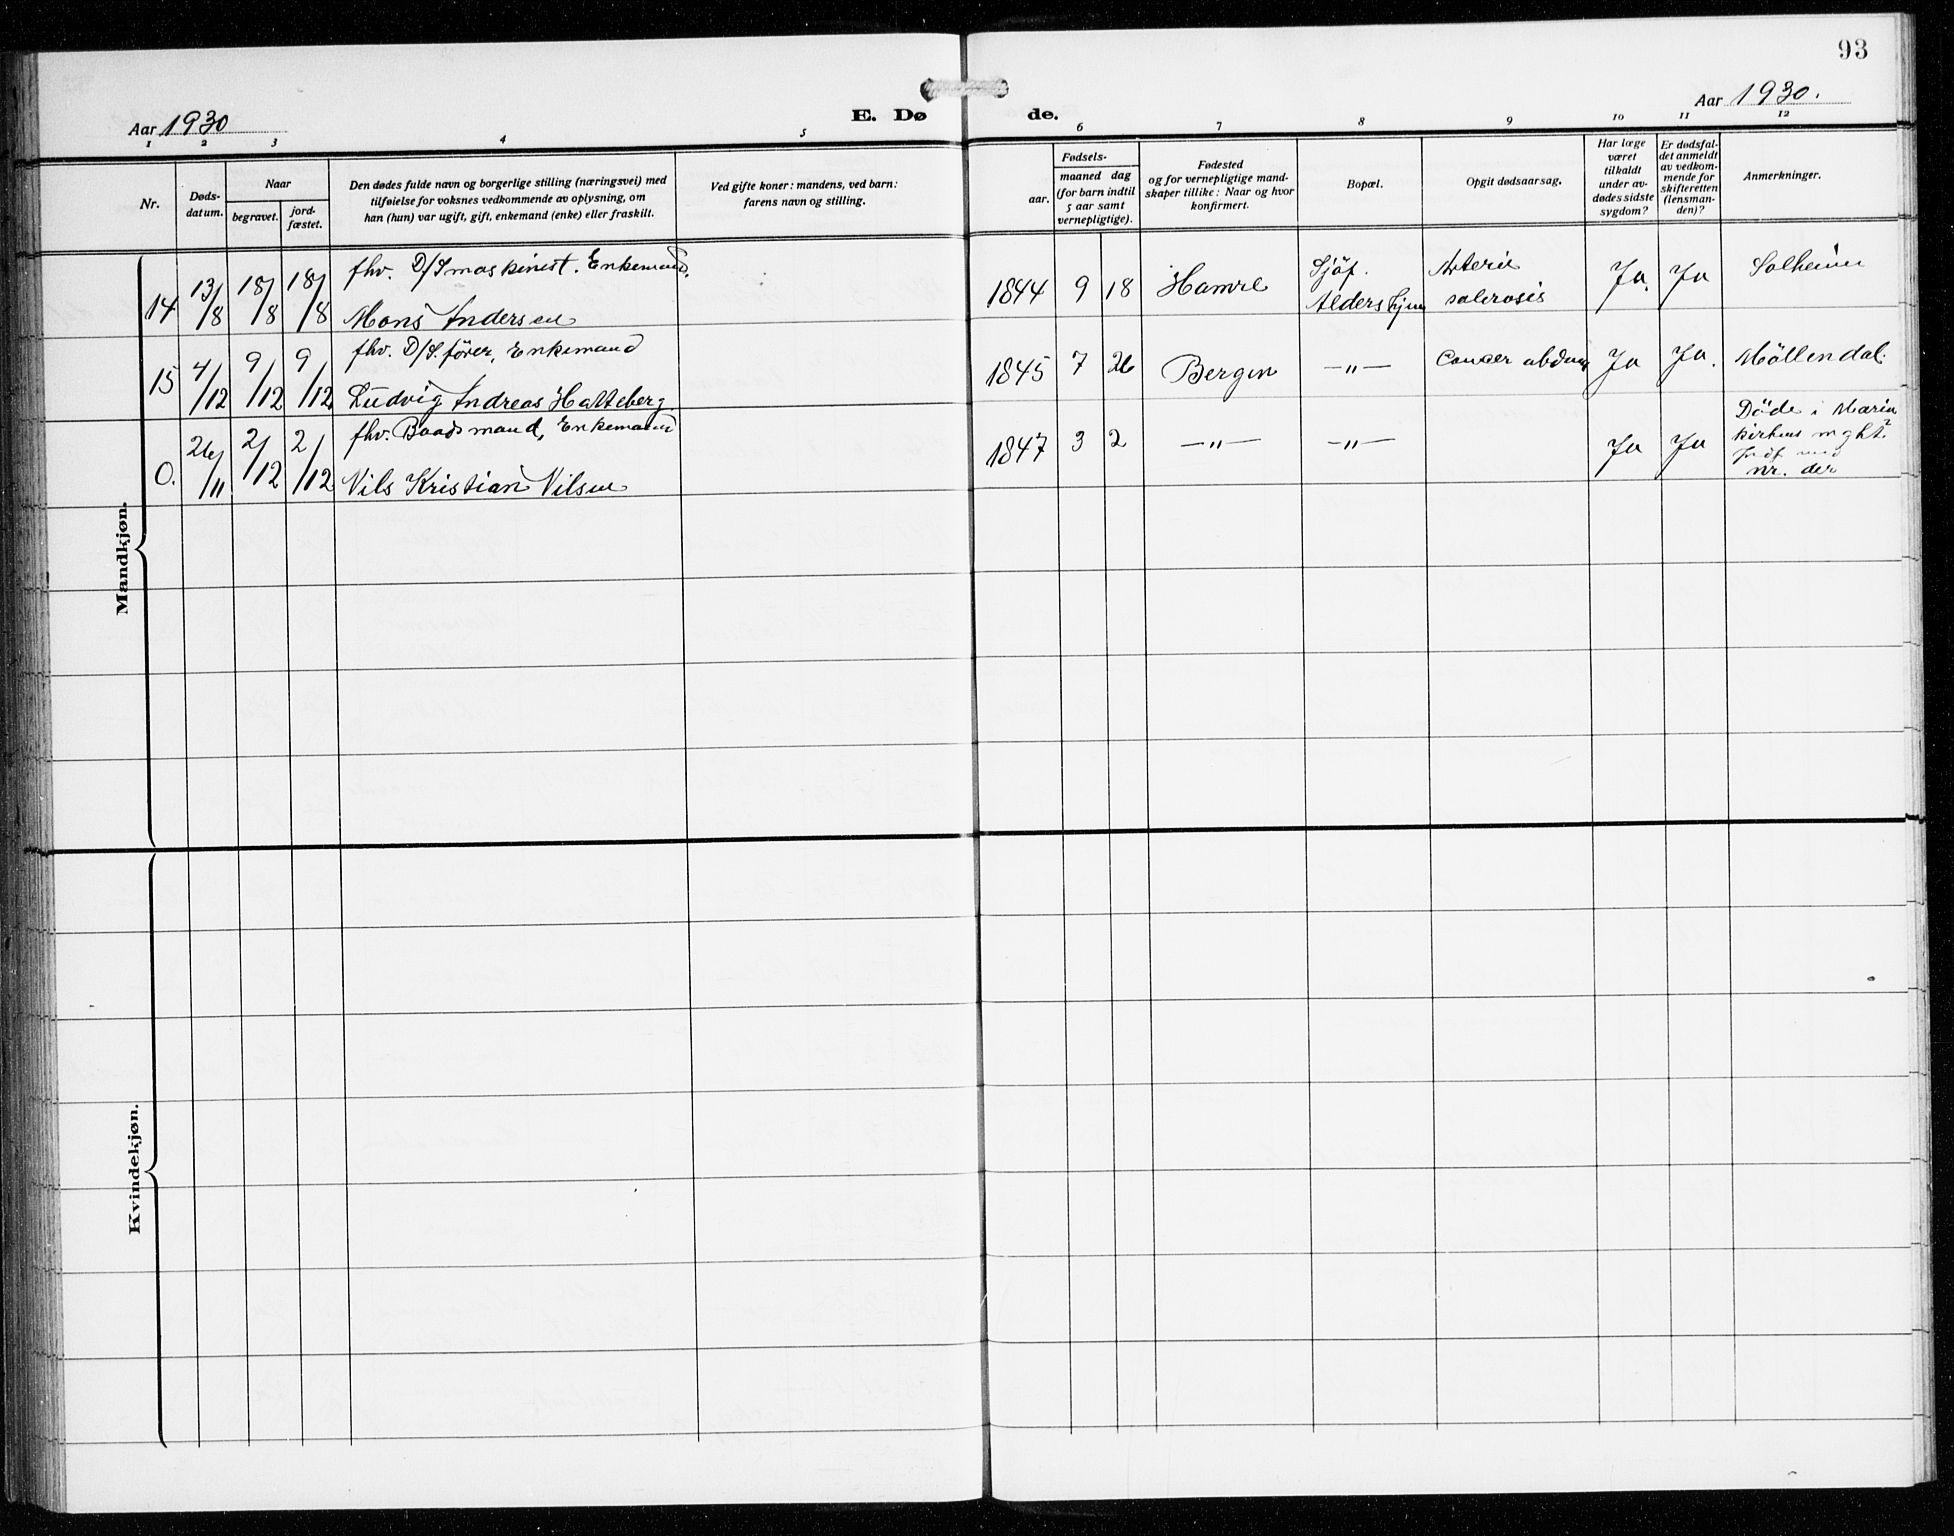 93
Aar 1930
E. Dø
de.
Aar 1930.
1 2 3 4 5 6 7 8 9 10 11 12
Nr.
Døds-
datum.
Naar
begravet.
jord-
fæstet.
Den dødes fulde navn og borgerlige stilling (næringsvei) med
tilføielse for voksnes vedkommende av oplysning, om
han (hun) var ugift, gift, enkemand (enke) eller fraskilt.
Ved gifte koner: mandens, ved barn:
farens navn og stilling.
Fødsels-
aar.
maaned dag
(for barn indtil
5 aar samt
vernepligtige).
Fødested
og for vernepligtige mand-
skaper tillike: Naar og hvor
konfirmert.
Bopæl.
Opgit dødsaarsag.
Har læge
været
tilkaldt
under av-
dødes sidste
sygdom?
Er dødsfal-
det anmeldt
av vedkom-
mende for
skifteretten
(lensman-
den)?
Anmerkninger.
Mandkjøn.
14 13/8 18/8 18/8 fhv. D/S maskinist. Enkemand.
Mons Andersen
1844 9 18 Hamre
Sjöf.
Aldershjem
Arterie
sclerosis
Ja. Ja Solheim
15 4/12 9/12 9/12 fhv. D/S. fører, Enkemand
Ludvig Andreas Hatteberg.
1845 7 26 Bergen —„— Cancer abdom Ja Ja. Möllendal.
0. 26/11 2/12 2/12 fhv. Baadsmand, Enkemand
Nils Kristian Nilsen
1847 3 2 —„— —„— Ja Ja
Döde i Marie
kirkens mght
med
nr. der
Kvindekjøn.